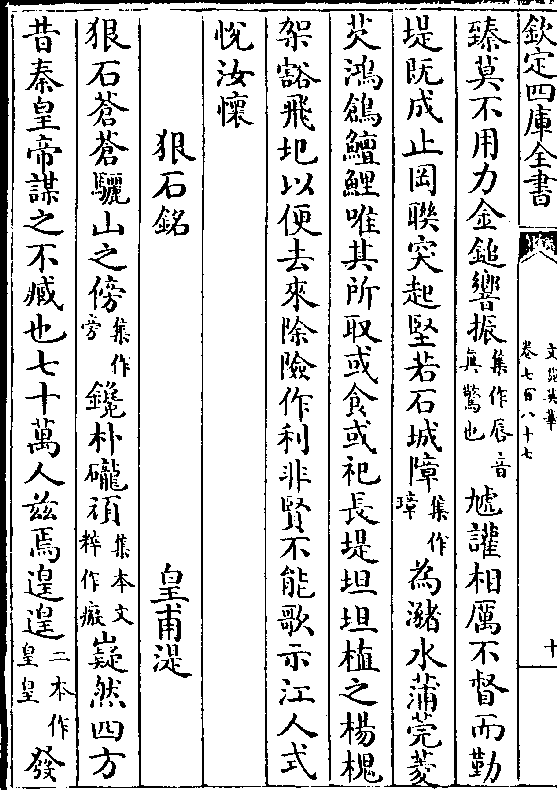 欽定四庫全書
文苑英華
卷七百八十七
十
臻莫不用力金鎚響振集作唇音真驚也尯讙相厲不督而勤
堤既成止岡聯突起堅若石城障集作璋為瀦水蒲莞菱
芡鴻鶬鱣鯉唯其所取或食或祀長堤坦坦植之楊槐
架豁飛圯以便去來除險作利非賢不能歌示江人式
悅汝懷
狠石銘
皇甫湜
狠石蒼蒼驪山之傍集作旁鑱朴礲頑集本文粹作癡嶷然四方
昔秦皇帝謀之不臧也七十萬人兹焉遑遑二本作皇皇發